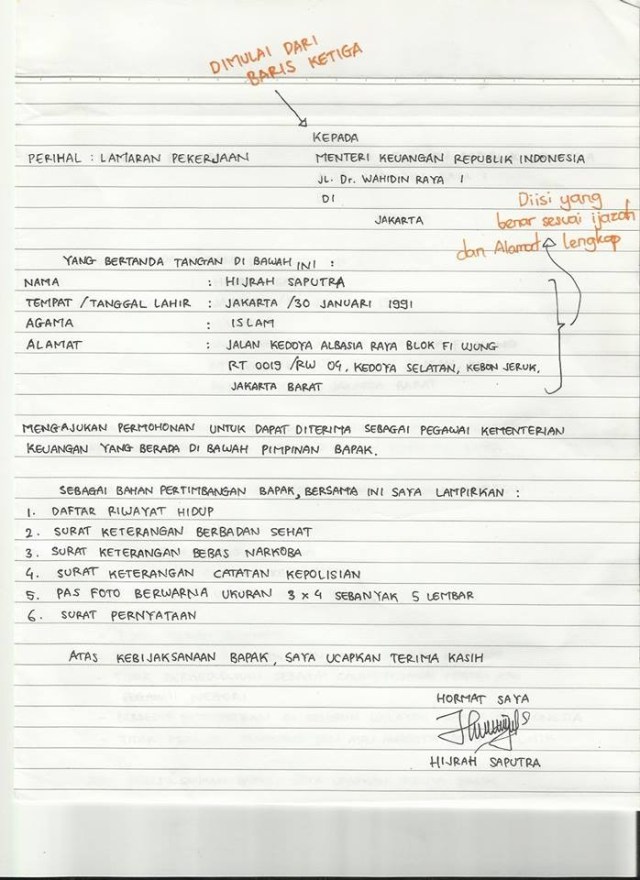 DIMULAI DARI
BARIS KETIGA
KEPADA
PERIHAL : LAMARAN PEKERJAAN MENTERI KEUANGAN REPUBLIK INDONESIA
JL. Dr. WAHIDIN RAYA 1
DI
JAKARTA
Diisi yang
benar sesuai ijazah
dan Alamat lengkap
YANG BERTANDA TANGAN DI BAWAH INI :
NAMA : HIJRAH SAPUTRA
TEMPAT / TANGGAL LAHIR : JAKARTA / 30 JANUARI 1991
AGAMA : ISLAM
ALAMAT : JALAN KEDOYA ALBASIA RAYA BLOK FI UJUNG
RT 0019 / RW 04, KEDOYA SELATAN, KEBON JERUK.
JAKARTA BARAT
MENGAJUKAN PERMOHONAN UNTUK DAPAT DITERIMA SEBAGAI PEGAWAI KEMENTERIAN
KEUANGAN YANG BERADA DI BAWAH PIMPINAN BAPAK.
SEBAGAI BAHAN PERTIMBANGAN BAPAK, BERSAMA INI SAYA LAMPIRKAN :
1. DAFTAR RIWAYAT HIDUP
2. SURAT KETERANGAN BERBADAN SEHAT
3. SURAT KETERANGAN BEBAS NARKOBA
4. SURAT KETERANGAN CATATAN KEPOLISIAN
5. PAS FOTO BERWARNA UKURAN 3 x 4 SEBANYAK 5 LEMBAR
6. SURAT PERNYATAAN
ATAS KEBIJAKSANAAN BAPAK, SAYA UCAPKAN TERIMA KASIH
HORMAT SAYA
HIJRAH SAPUTRA